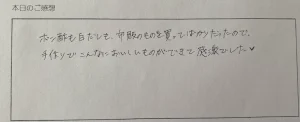 本日のご感想
ポン酢も白だしも、市販のものを買ってばかりだったので、
手作りでこんなにおいしいものができて感激でした♥